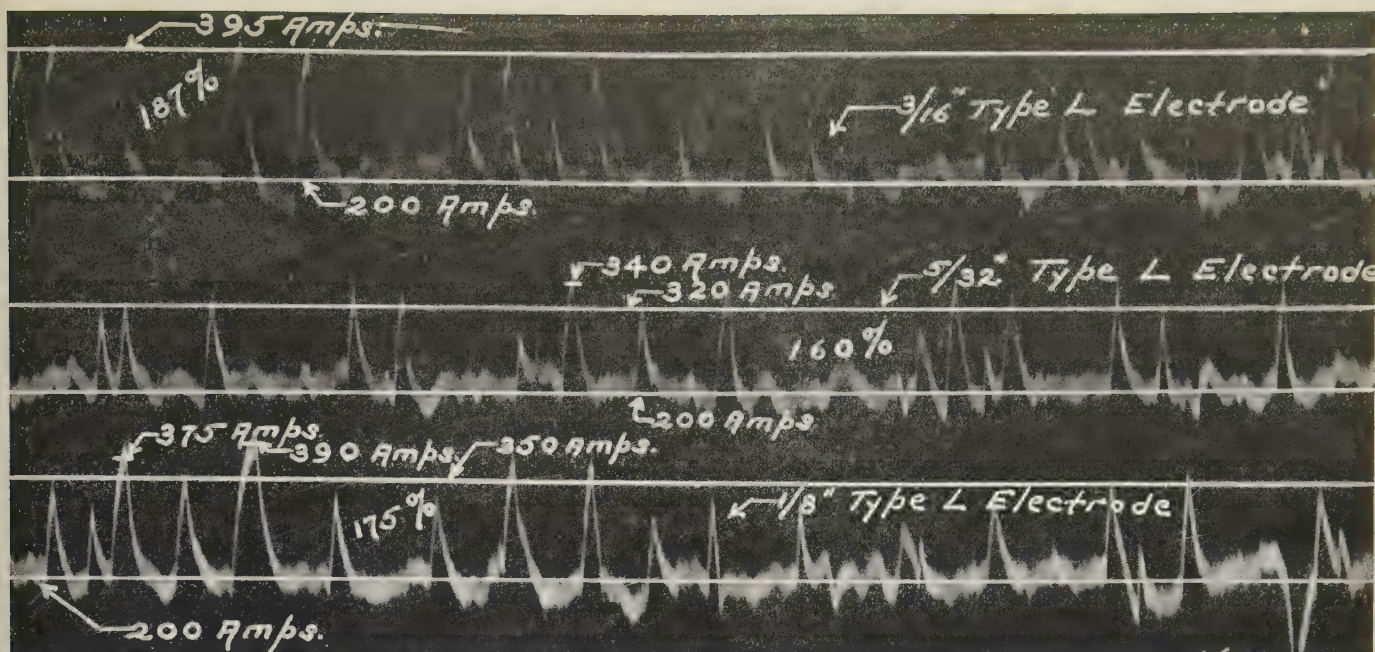 395 Amps.
187%
3/16" Type L Electrode
200 Amps.
340 Amps.
5/32" Type L Electrode
320 Amps
160%
200 Amps
375 Amps.
390 Amps.
350 Amps.
175%
1/8" Type L Electrode
200 Amps.